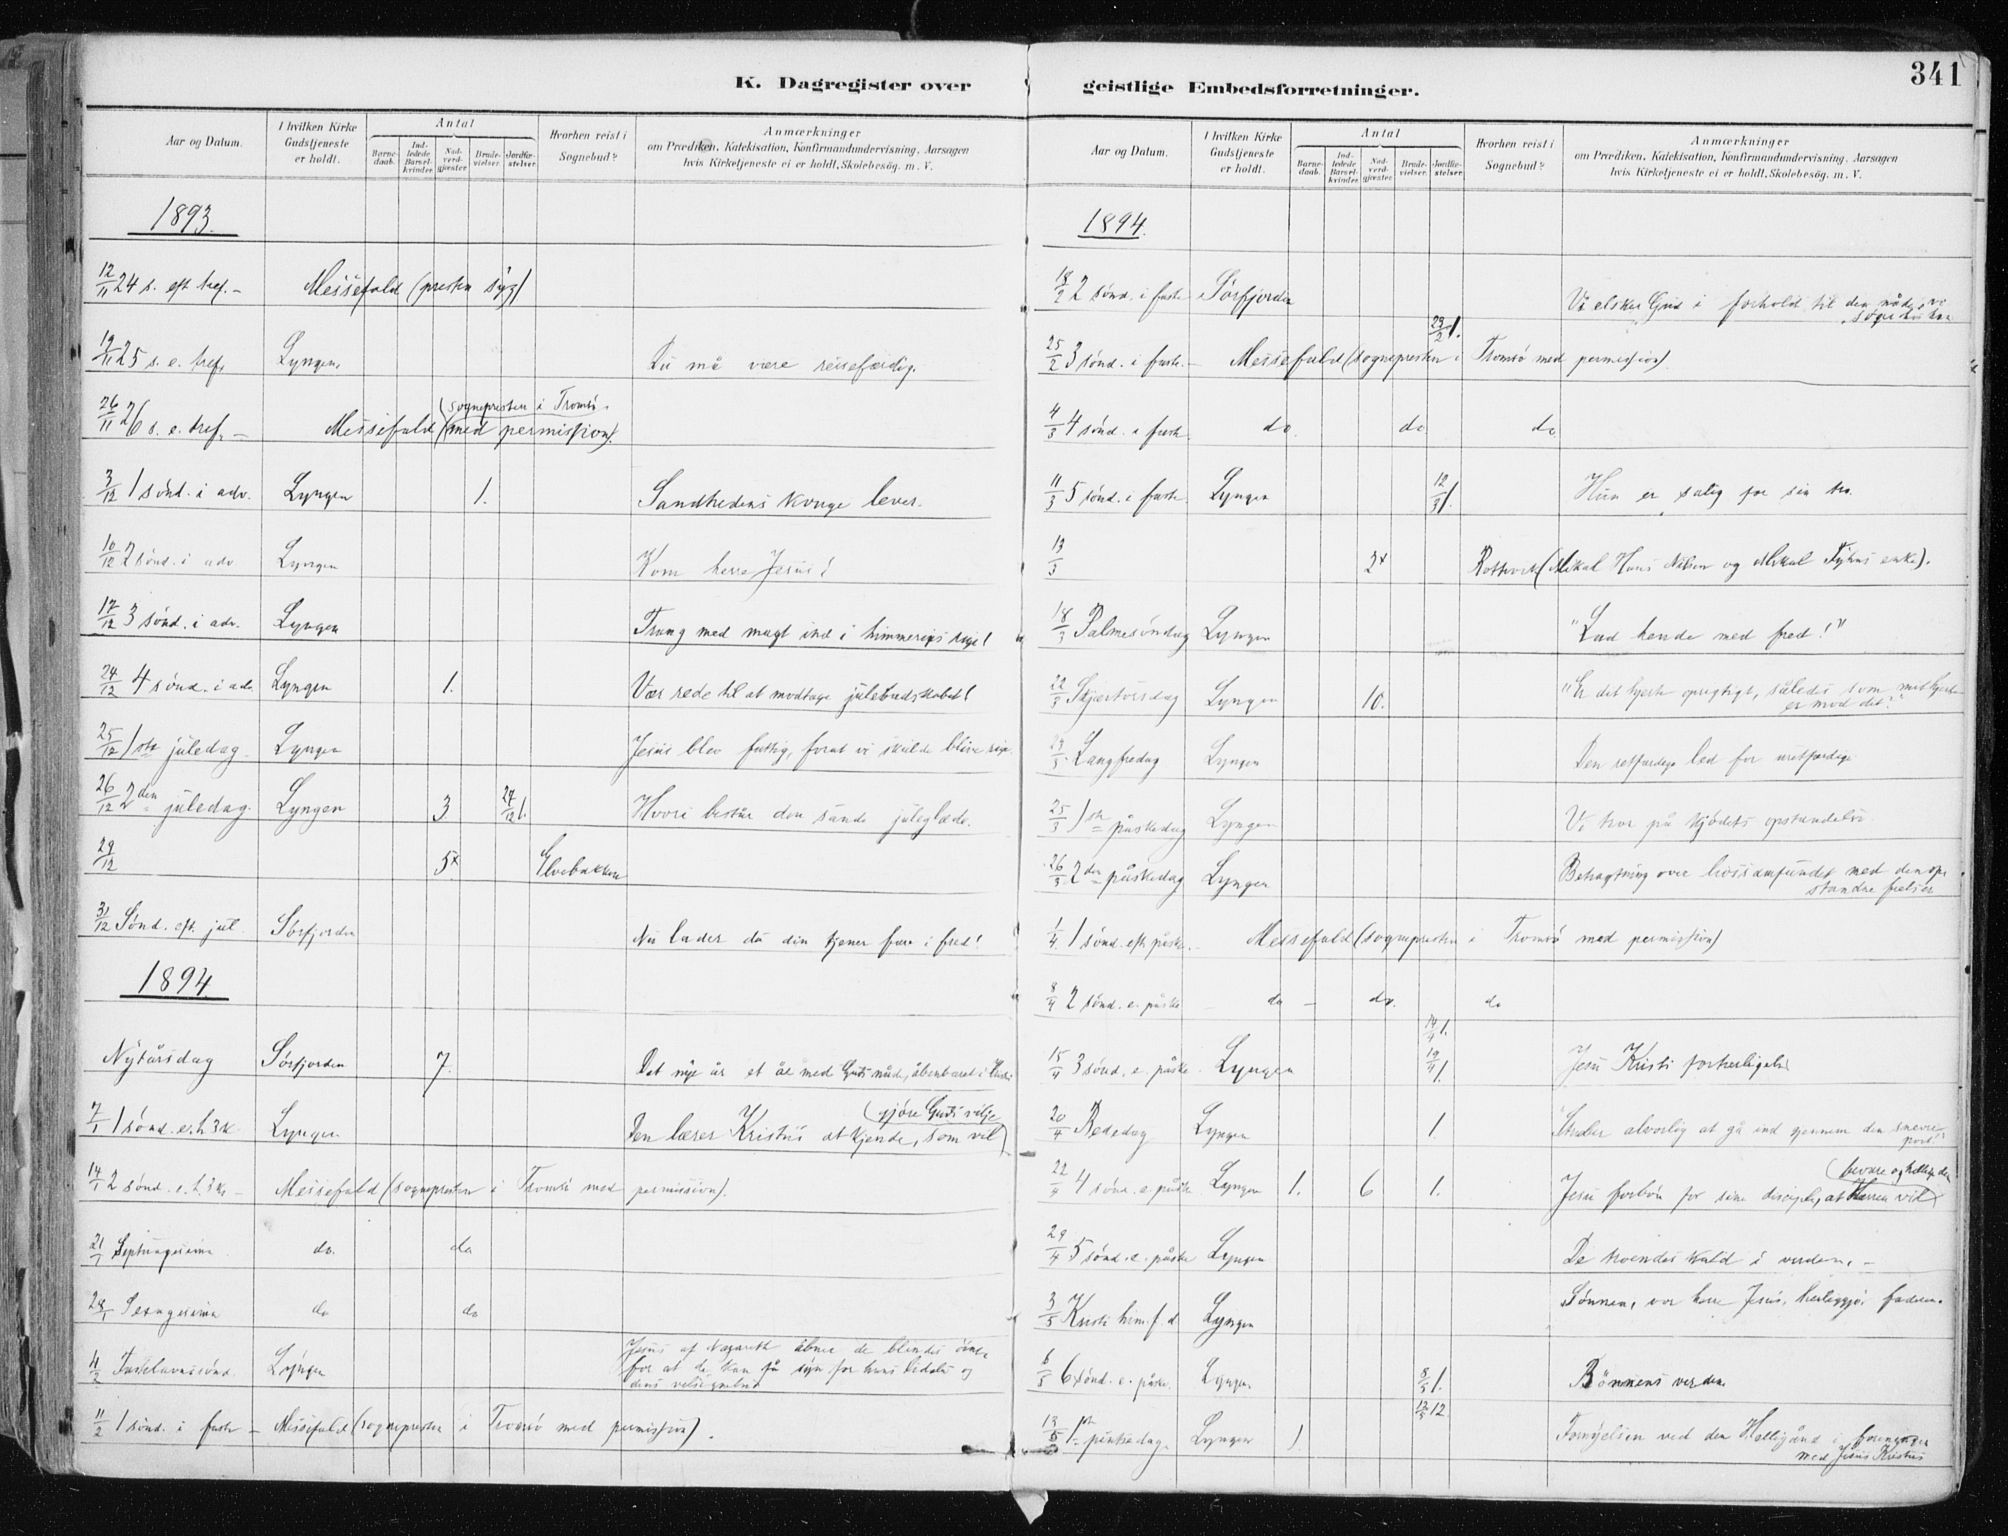 K. Dagregister over
Aar og Datum.
I hvilken Kirke Gudstjeneste er holdt.
Antal
Barnedaab.
Indledede Barselkvinder.
Nadverdgjester.
Brudevielser.
Jordfæstelser.
Hvorhen reist i Sognebud?
Anmærkninger
om Prædiken, Katekisation, Konfirmandundervisning, Aarsagen
hvis Kirketjeneste ei er holdt, Skolebesög. m. V.
1893.
12/11 24 s. eft tref. - Messefald (presten syg)
19/11 25 s. e. tref. Lyngen. Du må være reisefærdig.
26/11 26 s. e. tref. - Messefald (sognepresten i Tromsö
med permission).
3/12 1 sönd. i adv. Lyngen 1. Sandhedens konge lever.
10/12 2 sönd. i adv Lyngen Kom herre Jesus!
17/12 3 sönd. i adv. Lyngen Træng med magt ind i himmeriges rige!
24/12 4 sönd. i adv. Lyngen 1. Vær rede til at modtage julebudskabet!
25/12 1ste juledag Lyngen Jesus blev fattig, forat vi skulde blive rige.
26/12 2den juledag. Lyngen 3 27/12 1. Hvori består den sande juleglæde.
29/12 5x Elvebakken
31/12 Sönd. eft. jul. Sörfjorden Nu lader du din tjener fare i fred!
1894
Nytårsdag Sörfjorden 7. Det nye år et år med Guds nåde, åbenbaret i
7/1 1 sönd. e. h. 3 k. Lyngen Den lærer Kristus at kjende, som vil (gjöre Guds vilje
14/1 2 sönd. e. h. 3 k. - Messefald (sognepresten i Tromsö med permission).
21/1 Septuagesima do. do
28/1 Sexagesima do do
4/2 Fastelavnssönd. Lyngen Jesus af Nazareth åbner de blindes öine
for at de kan få syn for hans lidelse og
dens velsignelse
11/2 1 sönd. i faste - Messefald (sognepresten i Tromsö med permission).
geistlige Embedsforretninger.
341
Aar og Datum.
I hvilken Kirke Gudstjeneste er holdt.
Antal
Barnedaab.
Indledede Barselkvinder.
Nadverdgjester.
Brudevielser.
Jordfæstelser.
Hvorhen reist i Sognebud?
Anmærkninger
om Prædiken, Katekisation, Konfirmandundervisning, Aarsagen
hvis Kirketjeneste ei er holdt, Skolebesög. m. V.
1894.
18/2 2 sönd. i faste Sörfjorden Vi elsker Gud i forhold til den nåde, vi
23/2 1.
25/2 3 sönd. i faste. - Messefald (sognepresten i Tromsö med permission).
4/3 4 sönd. i faste do. do do
11/3 5 sönd. i faste Lyngen 12/3 1. Hun er salig for sin tro.
13/3 2x Rottvik (Mikal Hans Nilsen og Mikal enke).
18/3 Palmesöndag Lyngen "Lad hende med fred!"
22/3 Skjærtorsdag Lyngen 10. "Er dit hjerte oprigtigt, således som mit hjerte
er mod dit?"
23/3 Langfredag Lyngen Den retfærdige led for uretfærdige
25/3 1ste påskedag Lyngen Vi tror på kjödets opstandelse.
26/3 2den påskedag Lyngen Betragtning over livssamfundet med den op
standne frelser
1/4 1 sönd. eft påske. - Messefald (sognepresten i Tromsö med permission)
8/4 2 sönd. e. påske - do - do. do
14/4 1.
15/4 3 sönd. e. påske. Lyngen 19/4 1. Jesu Kristi forherligelse
20/4 Bededag Lyngen 1. Stræber alvorlig at gå ind gjennem den snevre
port!"
22/4 4 sönd. e. påske Lyngen 1. 6 1. Jesu forbön for sine disciple, at Herren vil (bevare og hellige dem
29/4 5 sönd. e. påske Lyngen De troendes kald i verden. -
3/5 Kristi him. f. d Lyngen Sönnen, vor herre Jesus, herliggjör faderen.
6/5 6 sönd. e. påske. Lyngen 8/5 1. Bönnens verden
12/5 12.
13/5 1ste pinsedag. Lyngen 1. Fornyelsen ved den Helligånd i foreningen
med Jesus Kristus